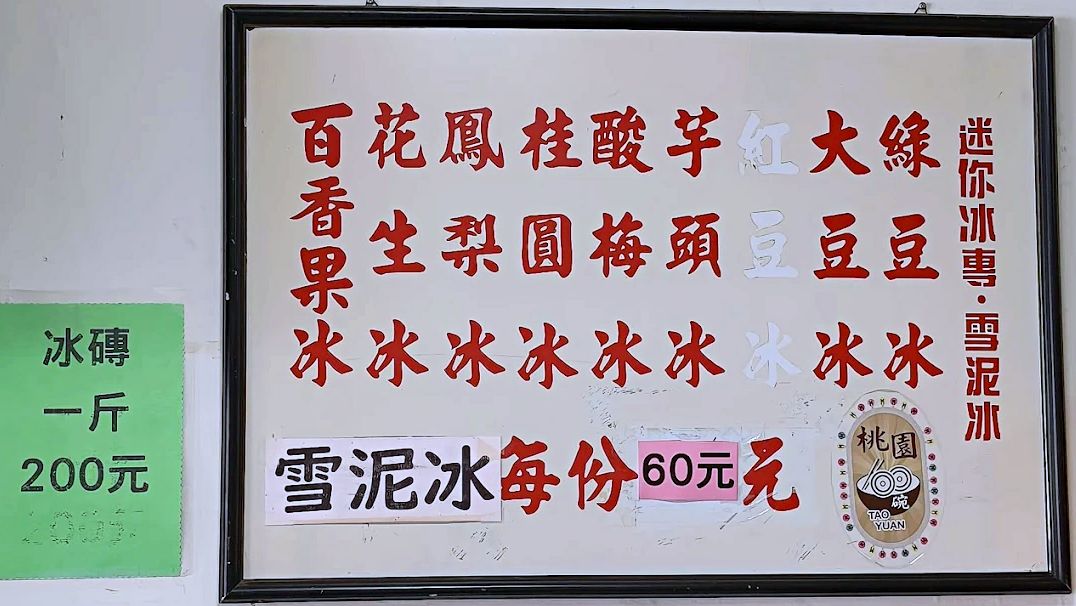 迷你冰專·雪泥冰
綠豆冰
大豆冰
紅豆冰
芋頭冰
酸梅冰
桂圓冰
鳳梨冰
花生冰
百香果冰
雪泥冰每份60元元
桃園
碗
TAO
YUAN
冰磚
一斤
200元